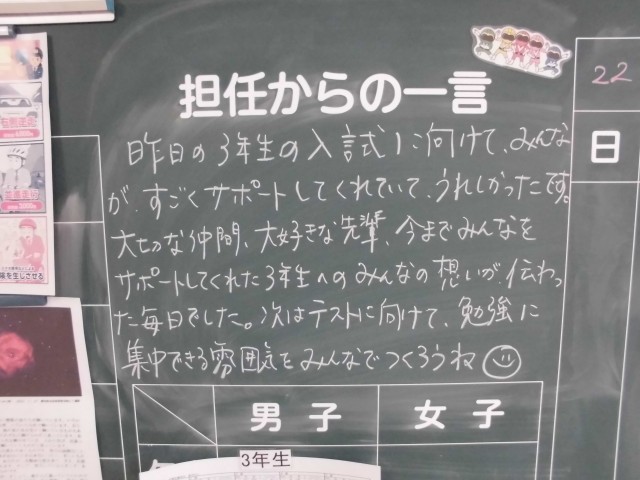 担任からの一言
22
日
昨日の3年生の入試に向けて、みんな
が、すごくサポートしてくれていて、うれしかったです。
大切な仲間、大好きな先輩、今までみんなを
サポートしてくれた3年生へのみんなの想いが、伝わっ
た毎日でした。次はテストに向けて、勉強に
集中できる雰囲気をみんなでつくろうね
男子
女子
3年生